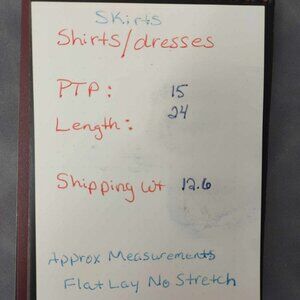 Skirts
Shirts/dresses
PTP: 15
Length: 24
Shipping wt 12.6
Approx Measurements
Flat Lay No Stretch